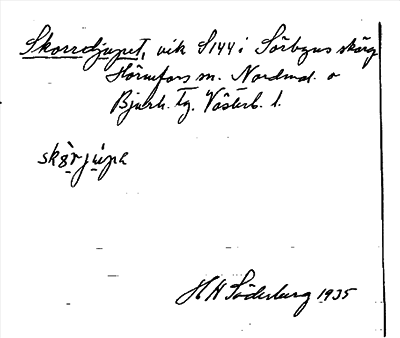 Skorredjupet, vik S144 i Sörbyns skärg
Hörnefors m. Nordmal. o
Bjurh. tg. Västerb. l.
skặrjụ́pa
H H Söderberg 1935